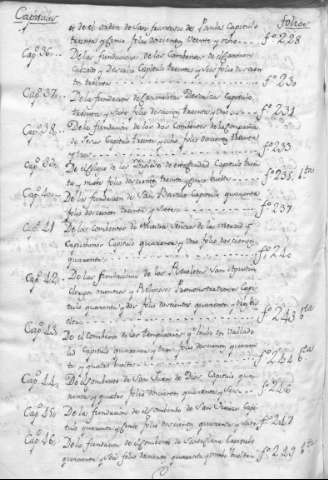 Capitulos folios
es de el orden de San francisco de Paula Capitulo
treinta y cinco folio doscientos veinte y ocho fº 228
Capº 36 De las fundaciones de los Combentos de el Carmen
Calzado y Descalzo Capitulo treinta y seis folio doscien
tos treinta fº 230
Capº 37 De la fundacion de Capitulo
treinta y siete folio doscientos treinta y uno fº 231
Capº 38 De la fundacion de los dos Combentos de la Compañia
de Jesus Capitulo treinta y ocho folio doscientos treinta
y tres fº 233
Capº 39 De el de la Trinidad Capitulo trein
ta y nueve folio doscientos treinta y cinco buelto fº 235 bto
Capº 40 De la fundacion de San Basilio Capitulo quarenta
folio doscientos treinta y siete fº 237
Capº 41 De los Combentos de la merced y
Capuchinos Capitulo quarenta y uno folio doscientos
quarenta fº 240
Capº 42 De las fundaciones de los Recoletos San Agustin
Clerigos menores y Capi
tulo quarenta y dos folio doscientos quarenta y tres bu
elto fº 243 bto
Capº 43 De el Combento de los Templarios que hubo en Vallado
lid Capitulo quarenta y tres folio doscientos quaren
ta y quatro buelto fº 244 bto
Capº 44 De el combento de San Juan de Dios Capitulo qua
renta y quatro folio doscientos quarenta y seis fº 246
Capº 45 De la fundacion de el combento de San Capi
tulo quarenta y cinco folio doscientos quarenta y siete fº 247
Capº 46 De la fundacion de el combento de Capitulo
quarenta y seis folio doscientos quarenta y nueve buelto fº 249 bto